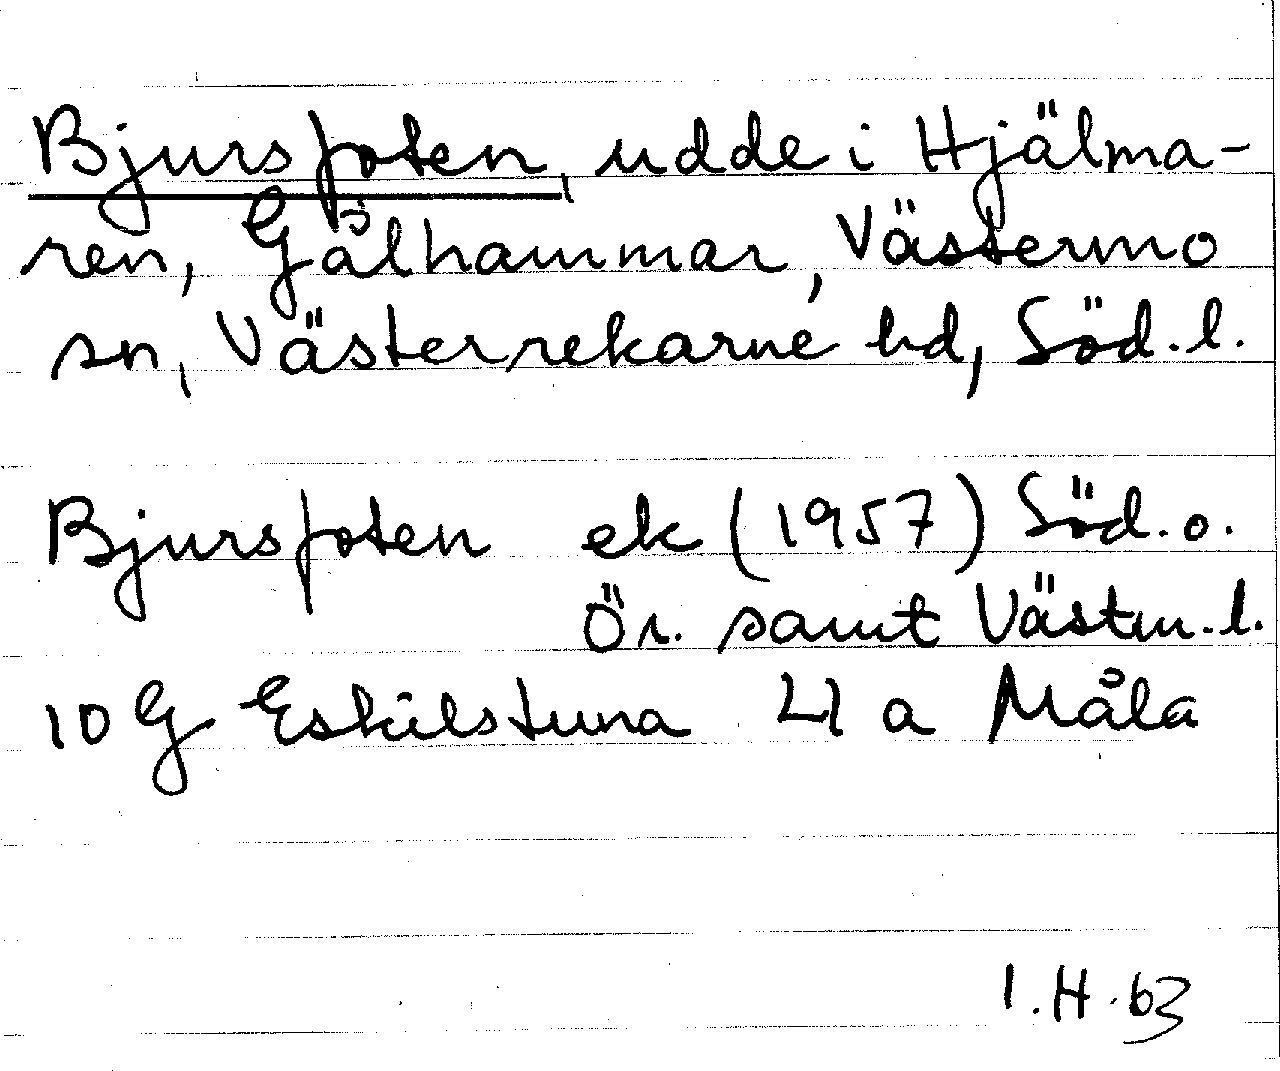 Bjursfoten, udde i Hjälma-
ren, Gålhammar, Västermo
sn, Västerrekarne hd, Söd. l.
Bjursfoten ek (1957) Söd. o.
Ör. samt Västm. l.
10 G Eskilstuna 4 a Måla
I. H. 63